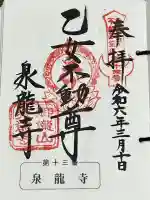 奉拝
令和六年三月十日
乙女不動尊
泉龍寺
第十三番
泉龍寺